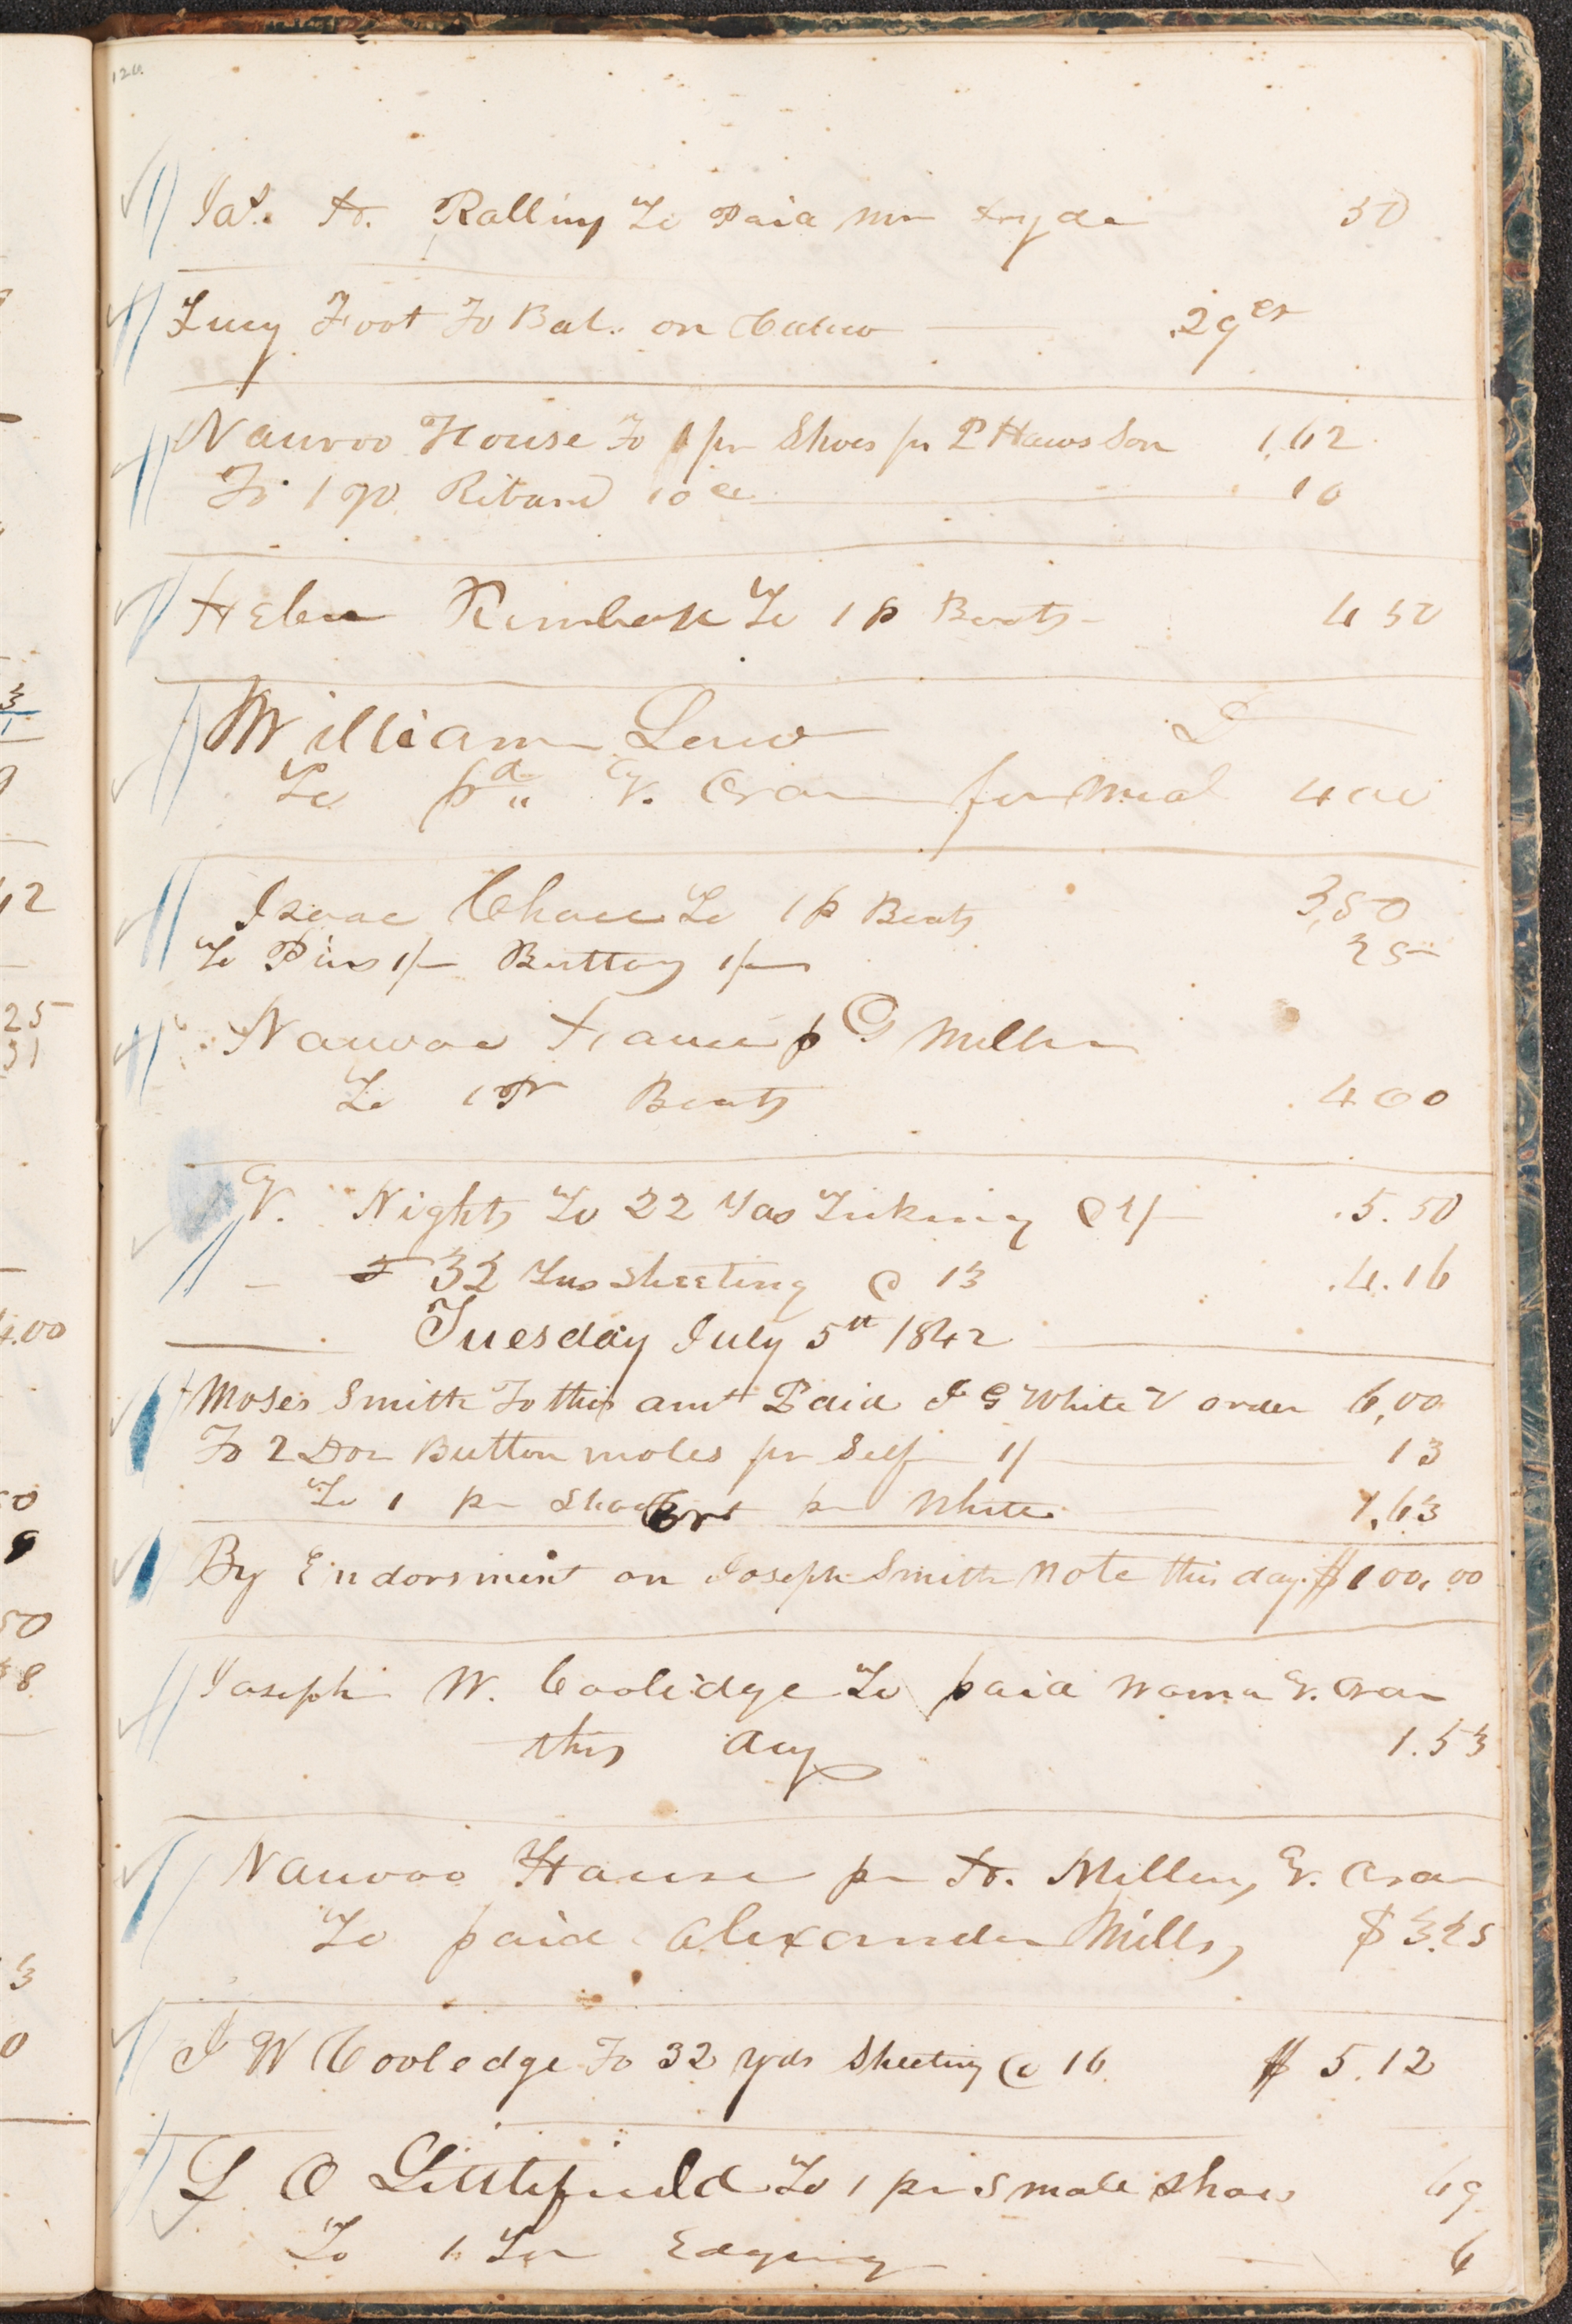 120.
Jas. H. Rollins To Paid Mr Hyde 50
Lucy Foot To Bal. on Calico .29 cts
Nauvoo House To 1 pr Shoes pr P Haws Son 1,62
To 1 yd. Riband 10 cts 10
Helen Kimball To 1 p Boots 4 50
William Law D
To pd G. Oram for Meal 4 00
Isaac Chace To 1 p Boots 3,50
To Pins 1/ Buttons 1/ 25
Nauvoo House p G Miller
To 1 Pr Boots 4 00
V. Nights To 22 Yds Ticking @ 2/ 5.50
To 32 Yds Sheeting @ 13 4.16
Tuesday July 5th 1842
Moses Smith To this amt Paid J G White V order 6,00
To 2 Doz Button moles pr Self 1/ 13
To 1 pr Shoes pr White 1,63
By Endorsment on Joseph Smith Note this day $100,00
Joseph W. Coolidge To paid
this day 1.53
Nauvoo House pr H. Miller,
To paid Alexander Mills, $3.25
J W Cooledge To 32 yds Sheeting @ 16 $ 5.12
L O Littlefield To 1 pr Small Shoes 69
To 1 Yd Edging 6
25
31
4.00